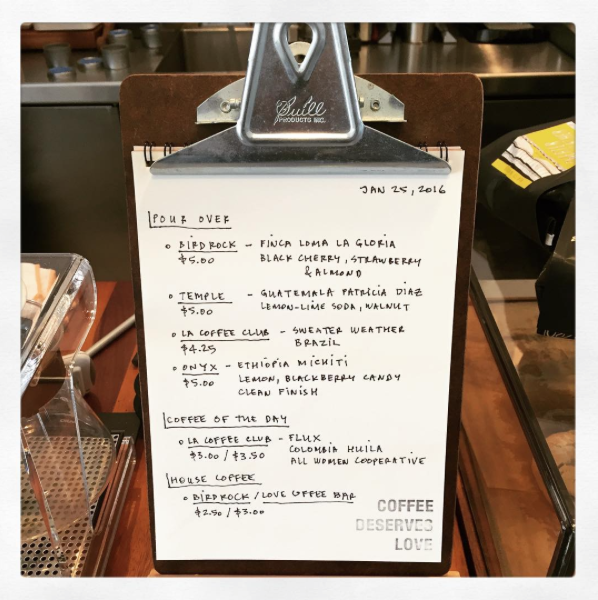 Quill
PRODUCTS INC.
JAN 25, 2016
POUR OVER
BIRDROCK – FINCA LOMA LA GLORIA
$5.00 BLACK CHERRY, STRAWBERRY
& ALMOND
TEMPLE – GUATEMALA PATRICIA DIAZ
$5.00 LEMON-LIME SODA, WALNUT
LA COFFEE CLUB – SWEATER WEATHER
$4.25 BRAZIL
ONYX – ETHIOPIA MICHITI
$5.00 LEMON, BLACKBERRY CANDY
CLEAN FINISH
COFFEE OF THE DAY
LA COFFEE CLUB – FLUX
$3.00 / $3.50 COLOMBIA HUILA
ALL WOMEN COOPERATIVE
HOUSE COFFEE
BIRDROCK / LOVE COFFEE BAR
$2.50 / $3.00
COFFEE
DESERVES
LOVE